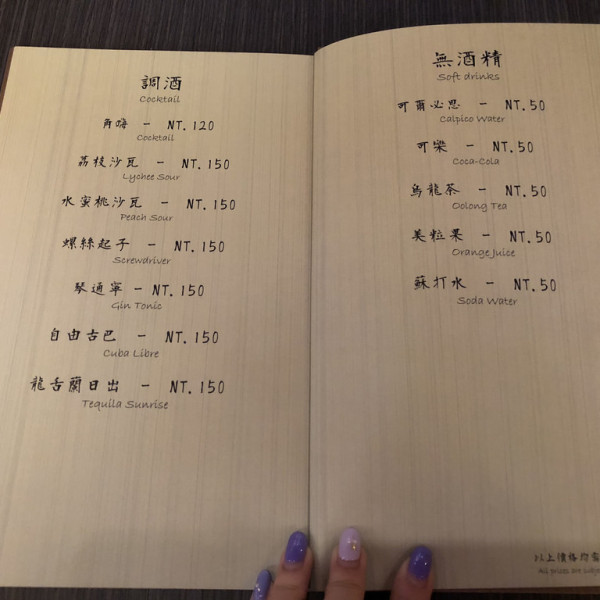 調酒
Cocktail
角嗨 - NT. 120
Cocktail
荔枝沙瓦 - NT. 150
Lychee Sour
水蜜桃沙瓦 - NT. 150
Peach Sour
螺絲起子 - NT. 150
Screwdriver
琴通寧 - NT. 150
Gin Tonic
自由古巴 - NT. 150
Cuba Libre
龍舌蘭日出 - NT. 150
Tequila Sunrise
無酒精
Soft drinks
可爾必思 - NT. 50
Calpico Water
可樂 - NT. 50
Coca-Cola
烏龍茶 - NT. 50
Oolong Tea
美粒果 - NT. 50
Orange Juice
蘇打水 - NT. 50
Soda Water
以上價格均需
All prices are subje